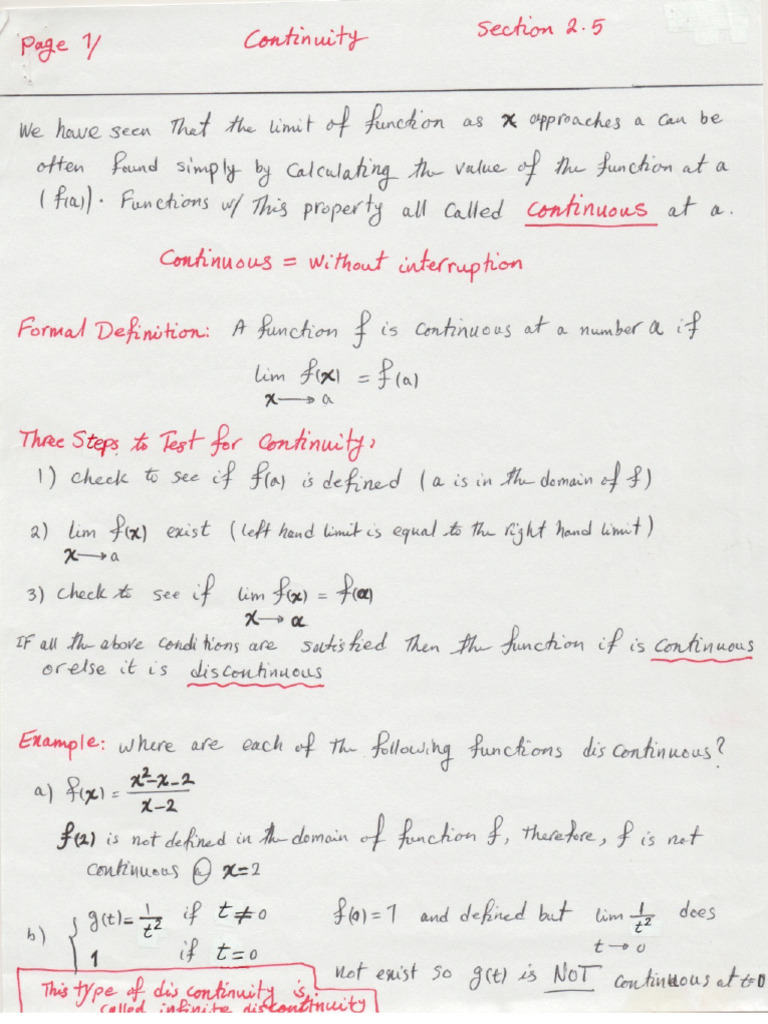 Page 1/ Continuity Section 2.5
We have seen That the limit of function as x approaches a can be
often found simply by calculating the value of the function at a
(f(a)). Functions w/ This property all called continuous at a.
Continuous = without interruption
Formal Definition: A function f is continuous at a number a if
lim f(x) = f(a)
x → a
Three Steps to Test for Continuity:
1) check to see if f(a) is defined (a is in the domain of f)
2) lim f(x) exist (left hand limit is equal to the right hand limit)
x → a
3) check to see if lim f(x) = f(a)
x → a
IF all the above conditions are satisfied Then the function if is continuous
or else it is discontinuous
Example: where are each of the following functions discontinuous?
a) f(x) = x²-x-2 / x-2
f(2) is not defined in the domain of function f, therefore, f is not
continuous @ x=2
b) { g(t) = 1/t² if t ≠ 0 f(0) = 1 and defined but lim 1/t² does
t → 0
1 if t = 0 not exist so g(t) is NOT continuous at t=0
This type of discontinuity is,
called infinite discontinuity